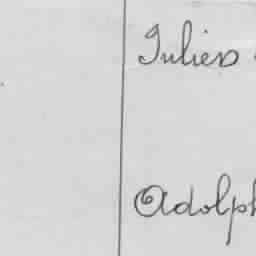 Julien
Adolph